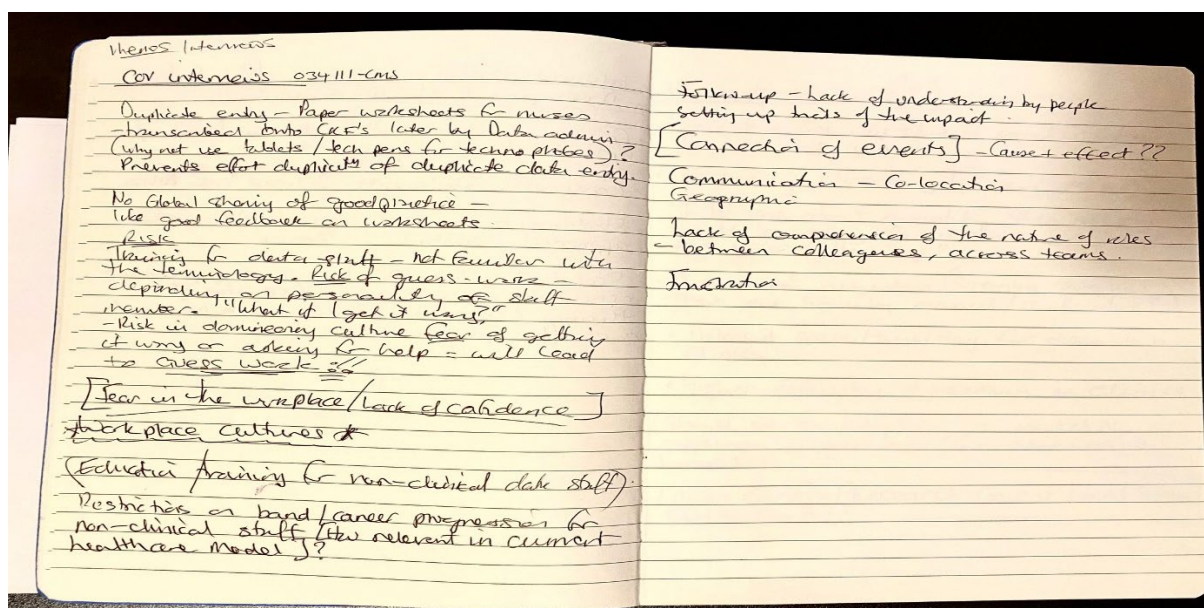 Themes Interviews
Cov interviews 034111-CMS
Duplicate entry - Paper worksheets for nurses
- transcribed onto CRF's later by Data admin
(why not use tablets / tech pens for techno phobes)?
Prevents effort duplicity of duplicate data entry.
No Global sharing of good practice -
like good feedback on worksheets.
RISK
Training for data staff - not familiar with
the terminology. Risk of guess-work -
depending on personality of staff
member. "What if I get it wrong?"
- Risk in domineering culture fear of getting
it wrong or asking for help = will lead
to Guess work !!
[Fear in the workplace / Lack of confidence]
*Workplace cultures *
(Education / training for non-clinical data staff).
Restriction on band / career progression for
non-clinical staff [How relevant in current
healthcare model]?
Follow-up - Lack of understanding by people
setting up trials of the impact.
[Connection of events] - Cause + effect ??
Communication - Co-location
Geographic
Lack of comprehension of the nature of roles
- between colleagues, across teams.
Frustration